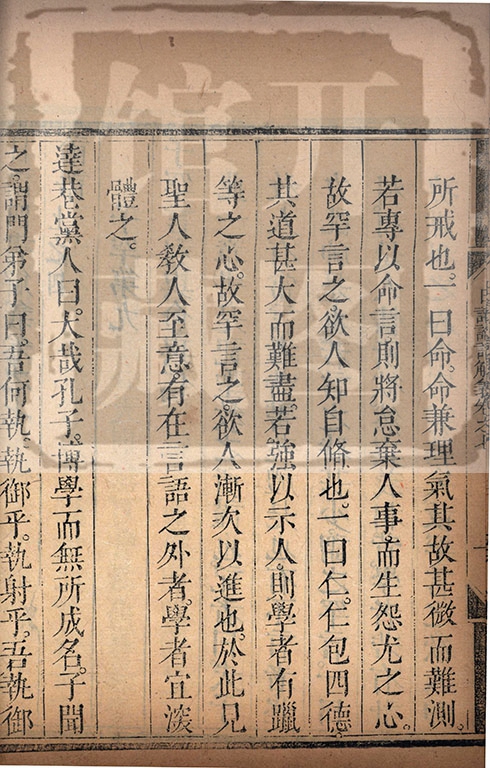 所戒也。一曰命。命兼理氣其故甚微而難測。
若專以命言則將怠棄人事。而生怨尤之心。
故罕言之。欲人知自脩也。一曰仁。仁包四德。
其道甚大而難盡。若強以示人。則學者有躐
等之心。故罕言之。欲人漸次以進也。於此見
聖人教人至意。有在言語之外者。學者宜深
體之。
達巷黨人曰。大哉孔子。博學而無所成名。子聞
之。謂門弟子曰。吾何執。執御乎。執射乎。吾執御